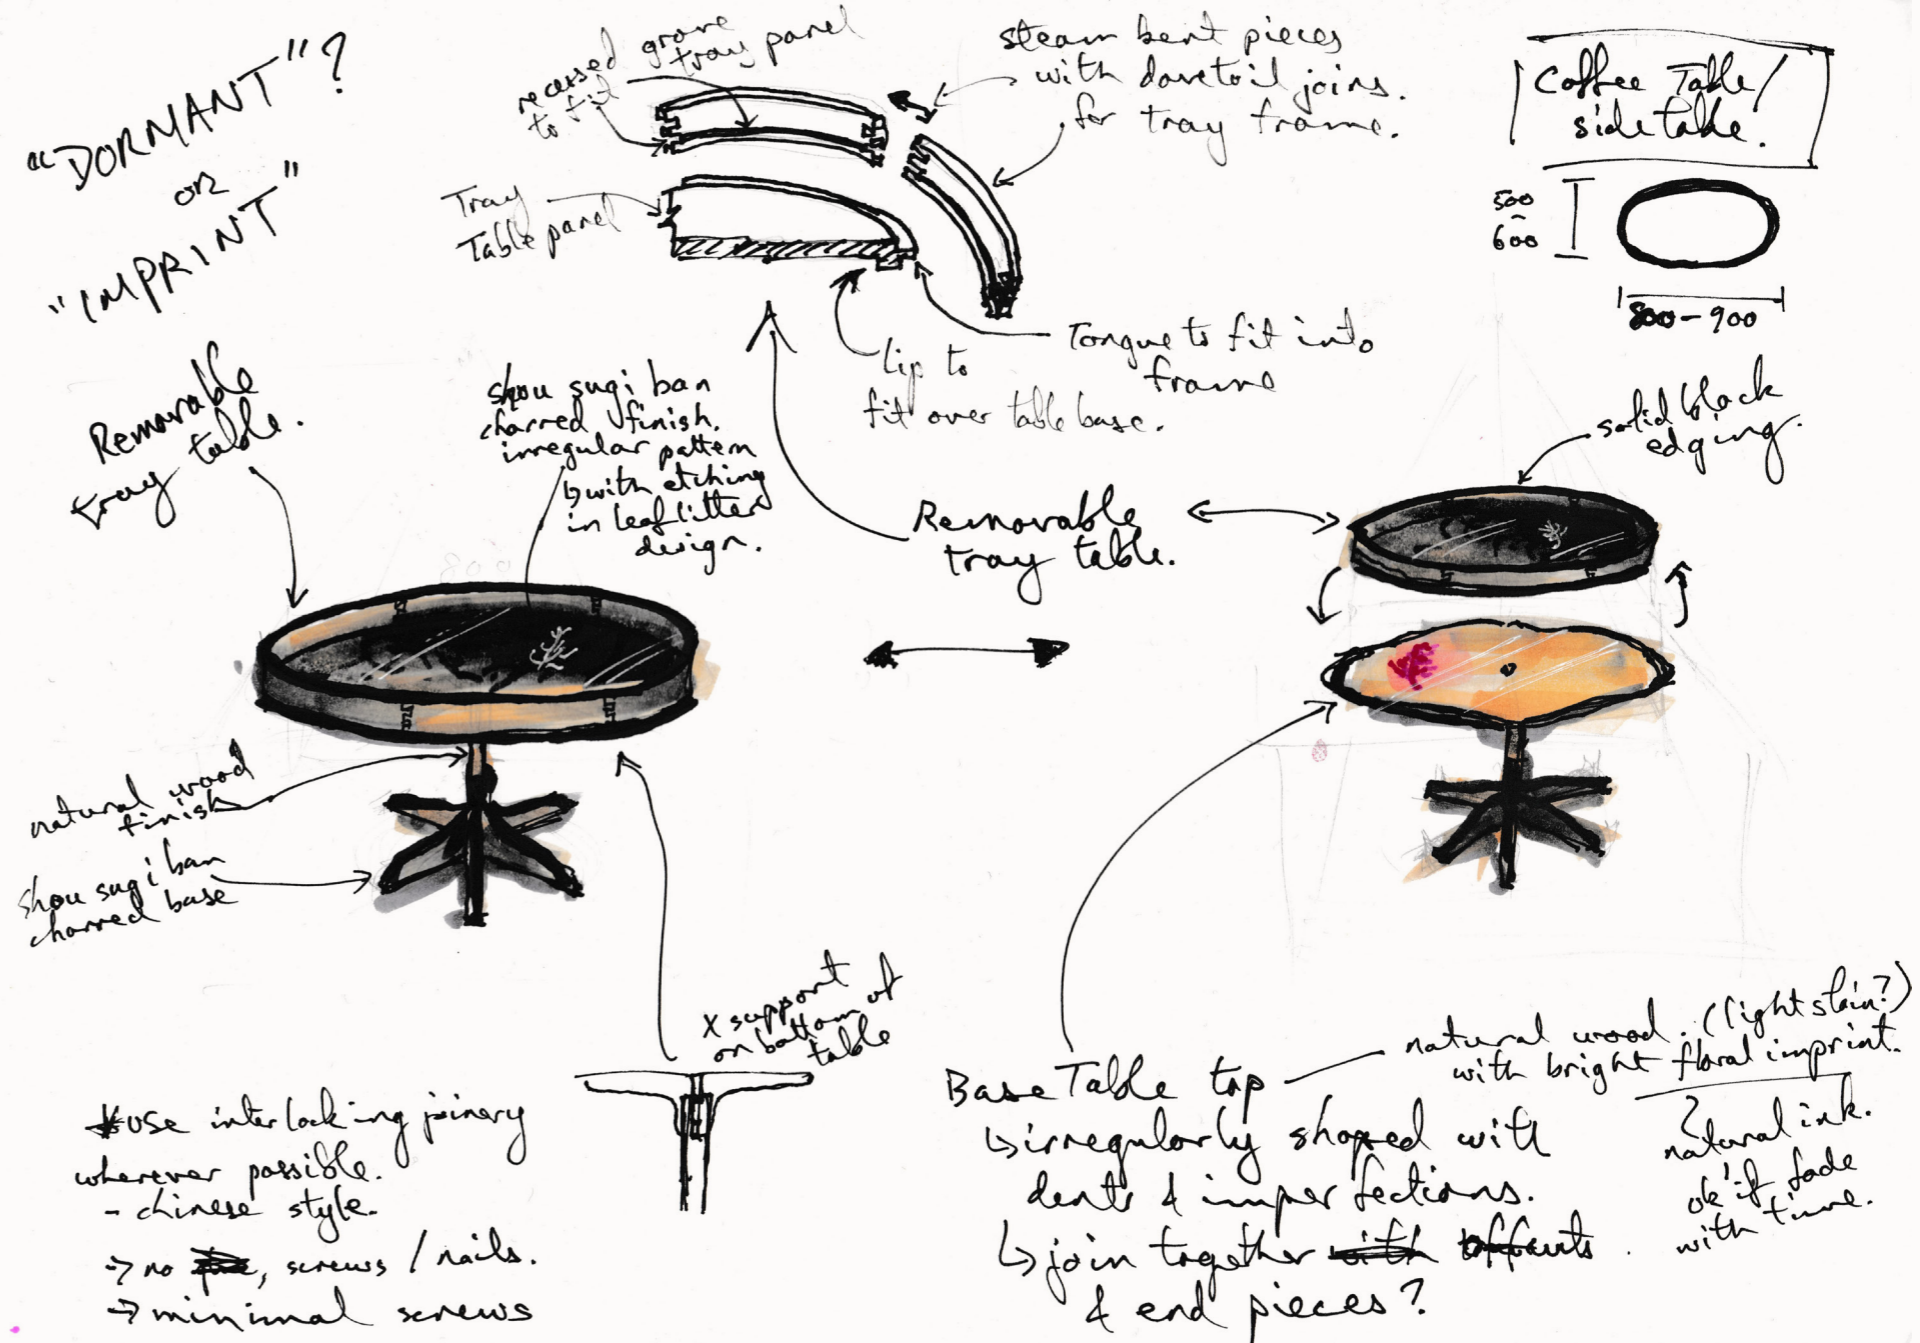 "DORMANT"?
or
"IMPRINT"
recessed grove
to fit tray panel
steam bent pieces
with dovetail joins.
for tray frame.
Coffee Table/
side table.
500
-
600
800-900
Tray
Table panel
Tongue to fit into
frame
lip to
fit over table base.
Removable
tray table.
shou sugi ban
charred finish.
irregular pattern
↳ with etching
in leaf litter
design.
Removable
tray table.
solid black
edging.
natural wood
finish
shou sugi ban
charred base
X support
on bottom of
table
* use interlocking joinery
wherever possible.
- chinese style.
→ no , screws / nails.
→ minimal screws
Base Table top
↳ irregularly shaped with
dents & imperfections.
↳ join together with offcuts.
& end pieces?
natural wood. (light stain?)
with bright floral imprint.
?
natural ink.
ok if fade
with time.